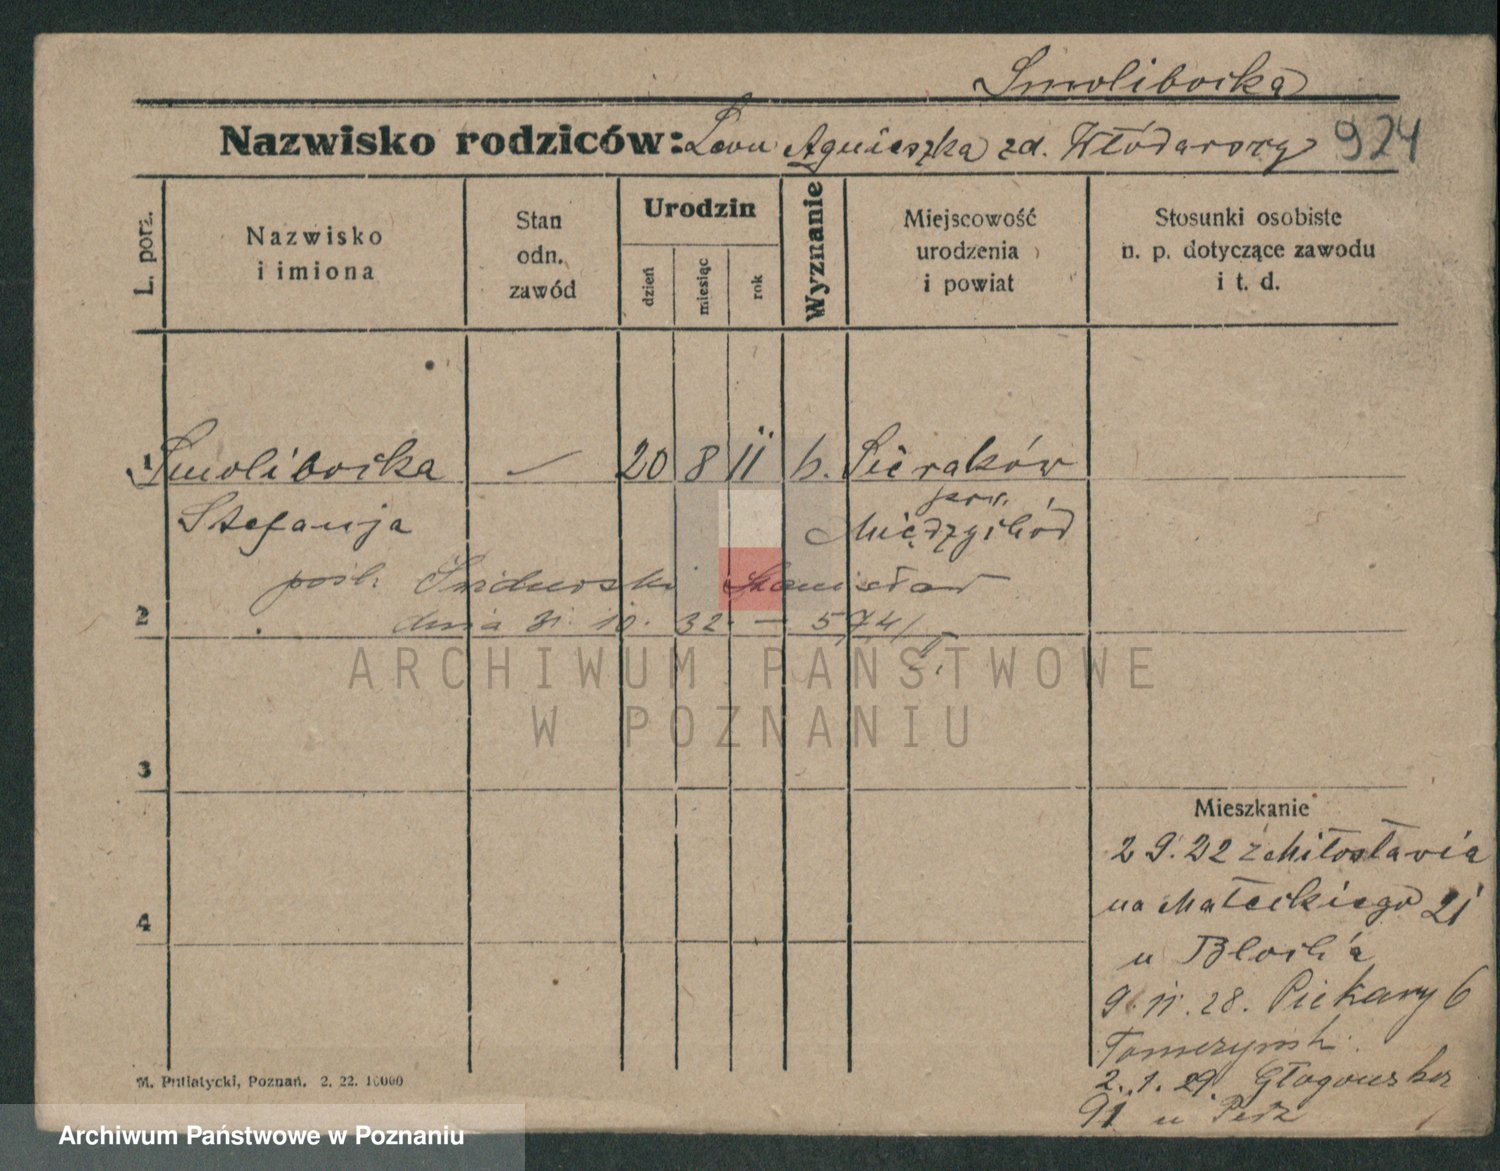 Smoliboćka
Nazwisko rodziców: Leon Agnieszka zd. Włódarozy 924
L. porz.
Nazwisko i imiona
Stan odn. zawód
Urodzin
dzień
miesiąc
rok
Wyznanie
Miejscowość urodzenia i powiat
Stosunki osobiste n. p. dotyczące zawodu i t. d.
1 Smoliboćka 20 8 11 k. Sieraków
Stefanja pow. Międzychód
pośl. Stanisław
2 dnia 31. 10. 32. — 574/
ARCHIWUM PAŃSTWOWE
W POZNANIU
3
Mieszkanie
2 9. 22 z Miłosławia
4 na Małeckiego 21
u Bloch'a
9. 11. 28. Piekary 6
2. 1. 29. Głogowska
91 u
M. Putiatycki, Poznań. 2. 22. 10000
Archiwum Państwowe w Poznaniu